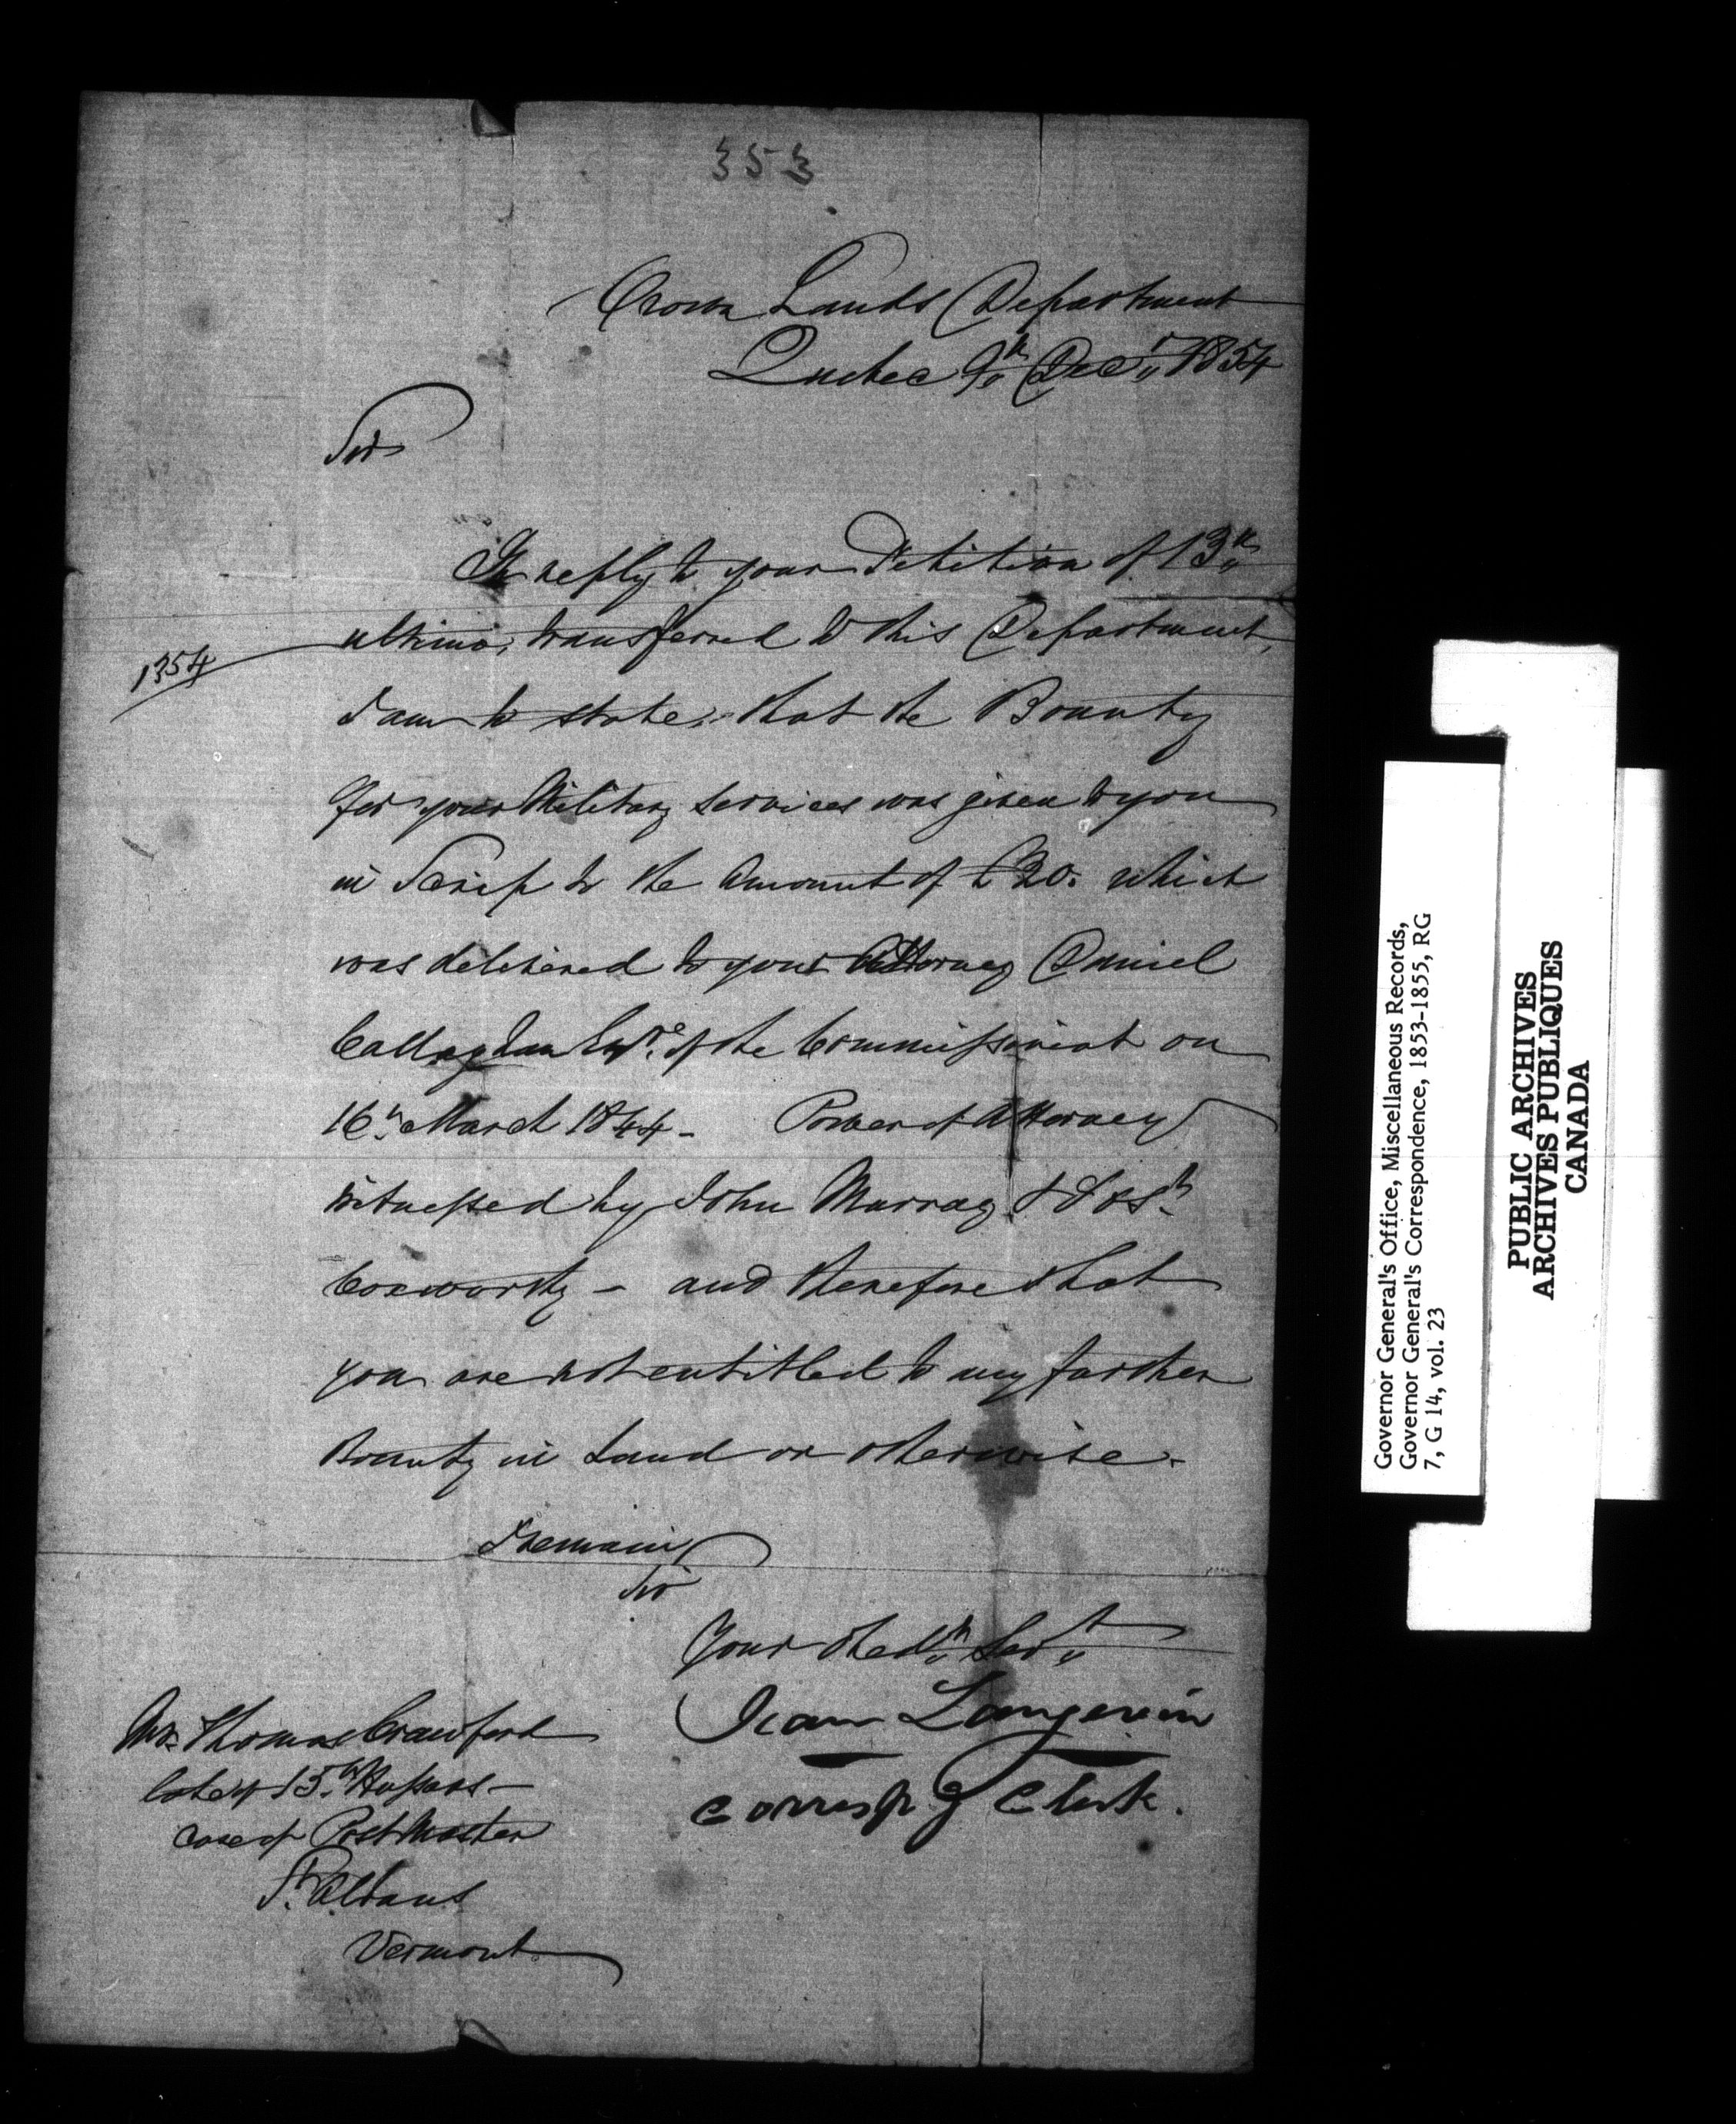 353
Crown Lands Department
Quebec 9th Decr 1854
Sir
In reply to your Petition of 13th
ultimo, transferred to this Department,
1354
I am to state, that the Bounty
for your Military services was given to you
in Scrip to the amount of £20. which
was delivered to your Attorney Daniel
Callaghan Esqre. of the Commissariat on
16th March 1844 - Power of Attorney
witnessed by John Murray &
Coxworthy - and therefore that
you are not entitled to any further
Bounty in Land or otherwise.
I remain
Sir
Your obedt Servt
Jean Langevin
Corresp.g Clerk.
Mr. Thomas Crawford
late of 15th Hussars -
care of Post Master
St. Albans
Vermont.
Governor General's Office, Miscellaneous Records,
Governor General's Correspondence, 1853-1855, RG
7, G 14, vol. 23
PUBLIC ARCHIVES
ARCHIVES PUBLIQUES
CANADA